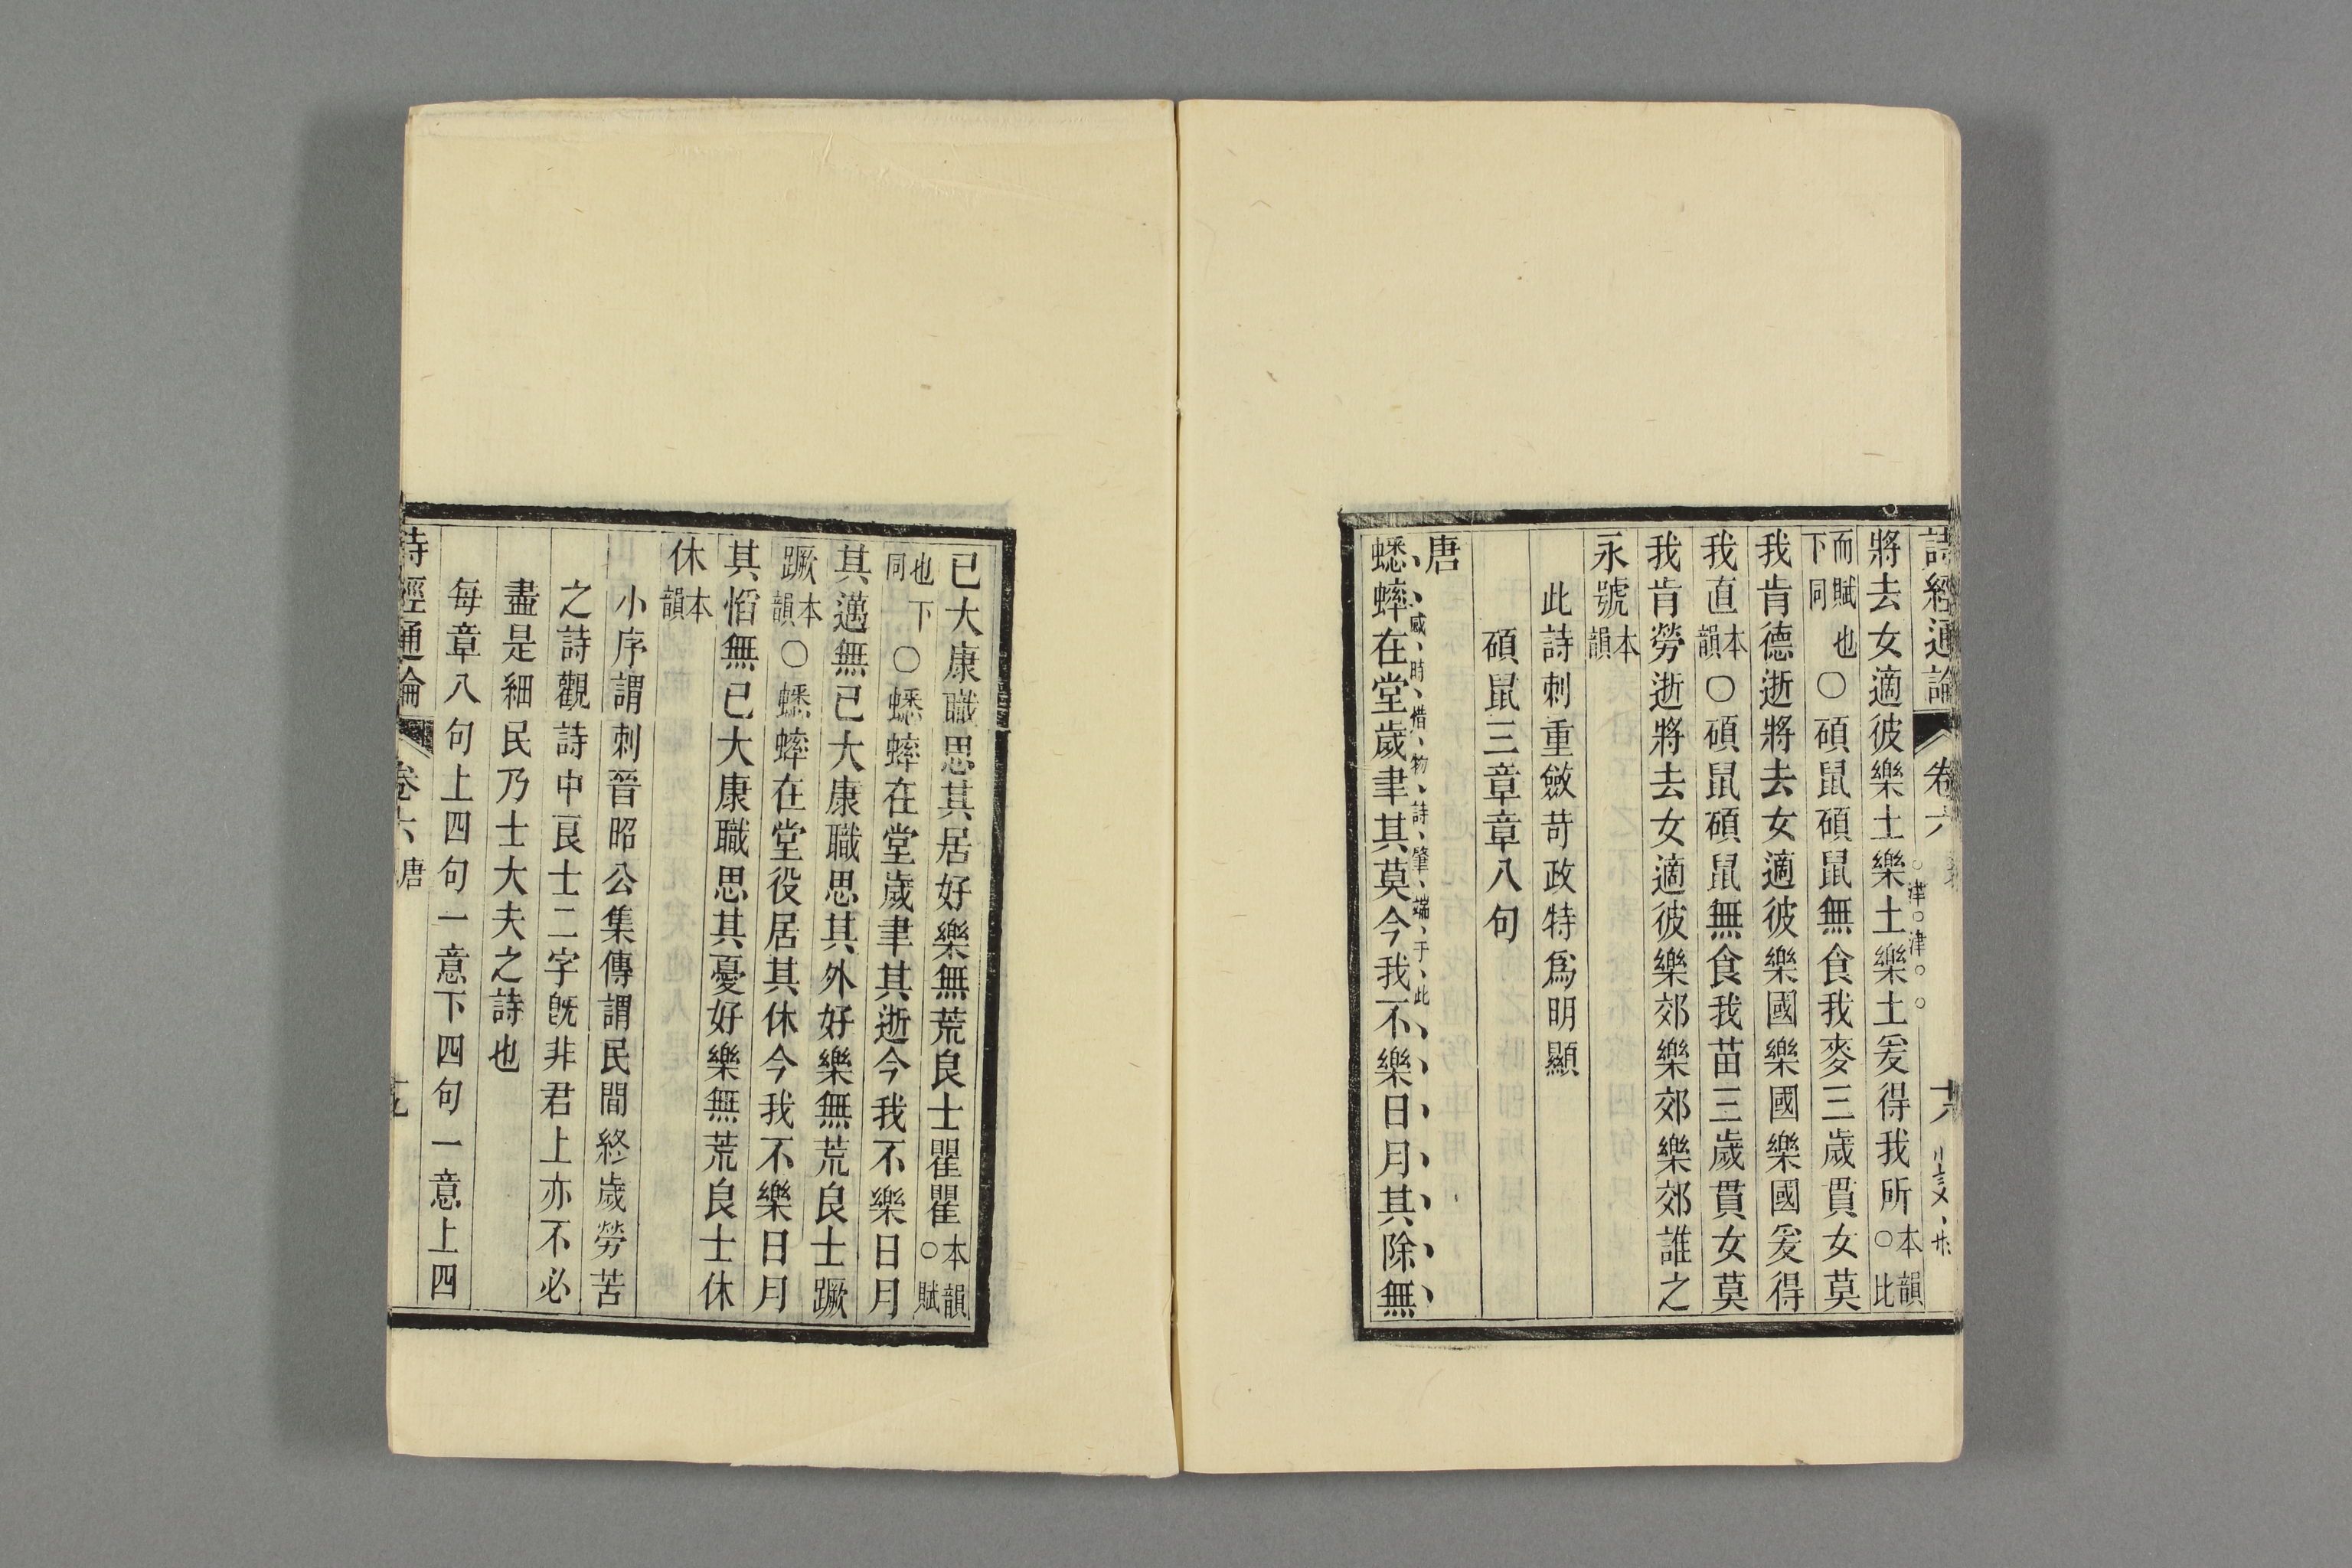 詩經通論 卷六 十六
將去女適彼樂土樂土樂土爰得我所本韻○比
津津
而賦也下同○碩鼠碩鼠無食我麥三歲貫女莫
我肯德逝將去女適彼樂國樂國樂國爰得
我直本韻○碩鼠碩鼠無食我苗三歲貫女莫
我肯勞逝將去女適彼樂郊樂郊樂郊誰之
永號本韻
此詩刺重斂苛政特爲明顯
碩鼠三章章八句
唐
感時惜物詩肇端于此
蟋蟀在堂歲聿其莫今我不樂日月其除無
已大康職思其居好樂無荒良士瞿瞿本韻○賦
也下同○蟋蟀在堂歲聿其逝今我不樂日月
其邁無已大康職思其外好樂無荒良士蹶
蹶本韻○蟋蟀在堂役居其休今我不樂日月
其慆無已大康職思其憂好樂無荒良士休
休本韻
小序謂刺晉昭公集傳謂民間終歲勞苦
之詩觀詩中良士二字旣非君上亦不必
盡是細民乃士大夫之詩也
每章八句上四句一意下四句一意上四
詩經通論 卷六 唐